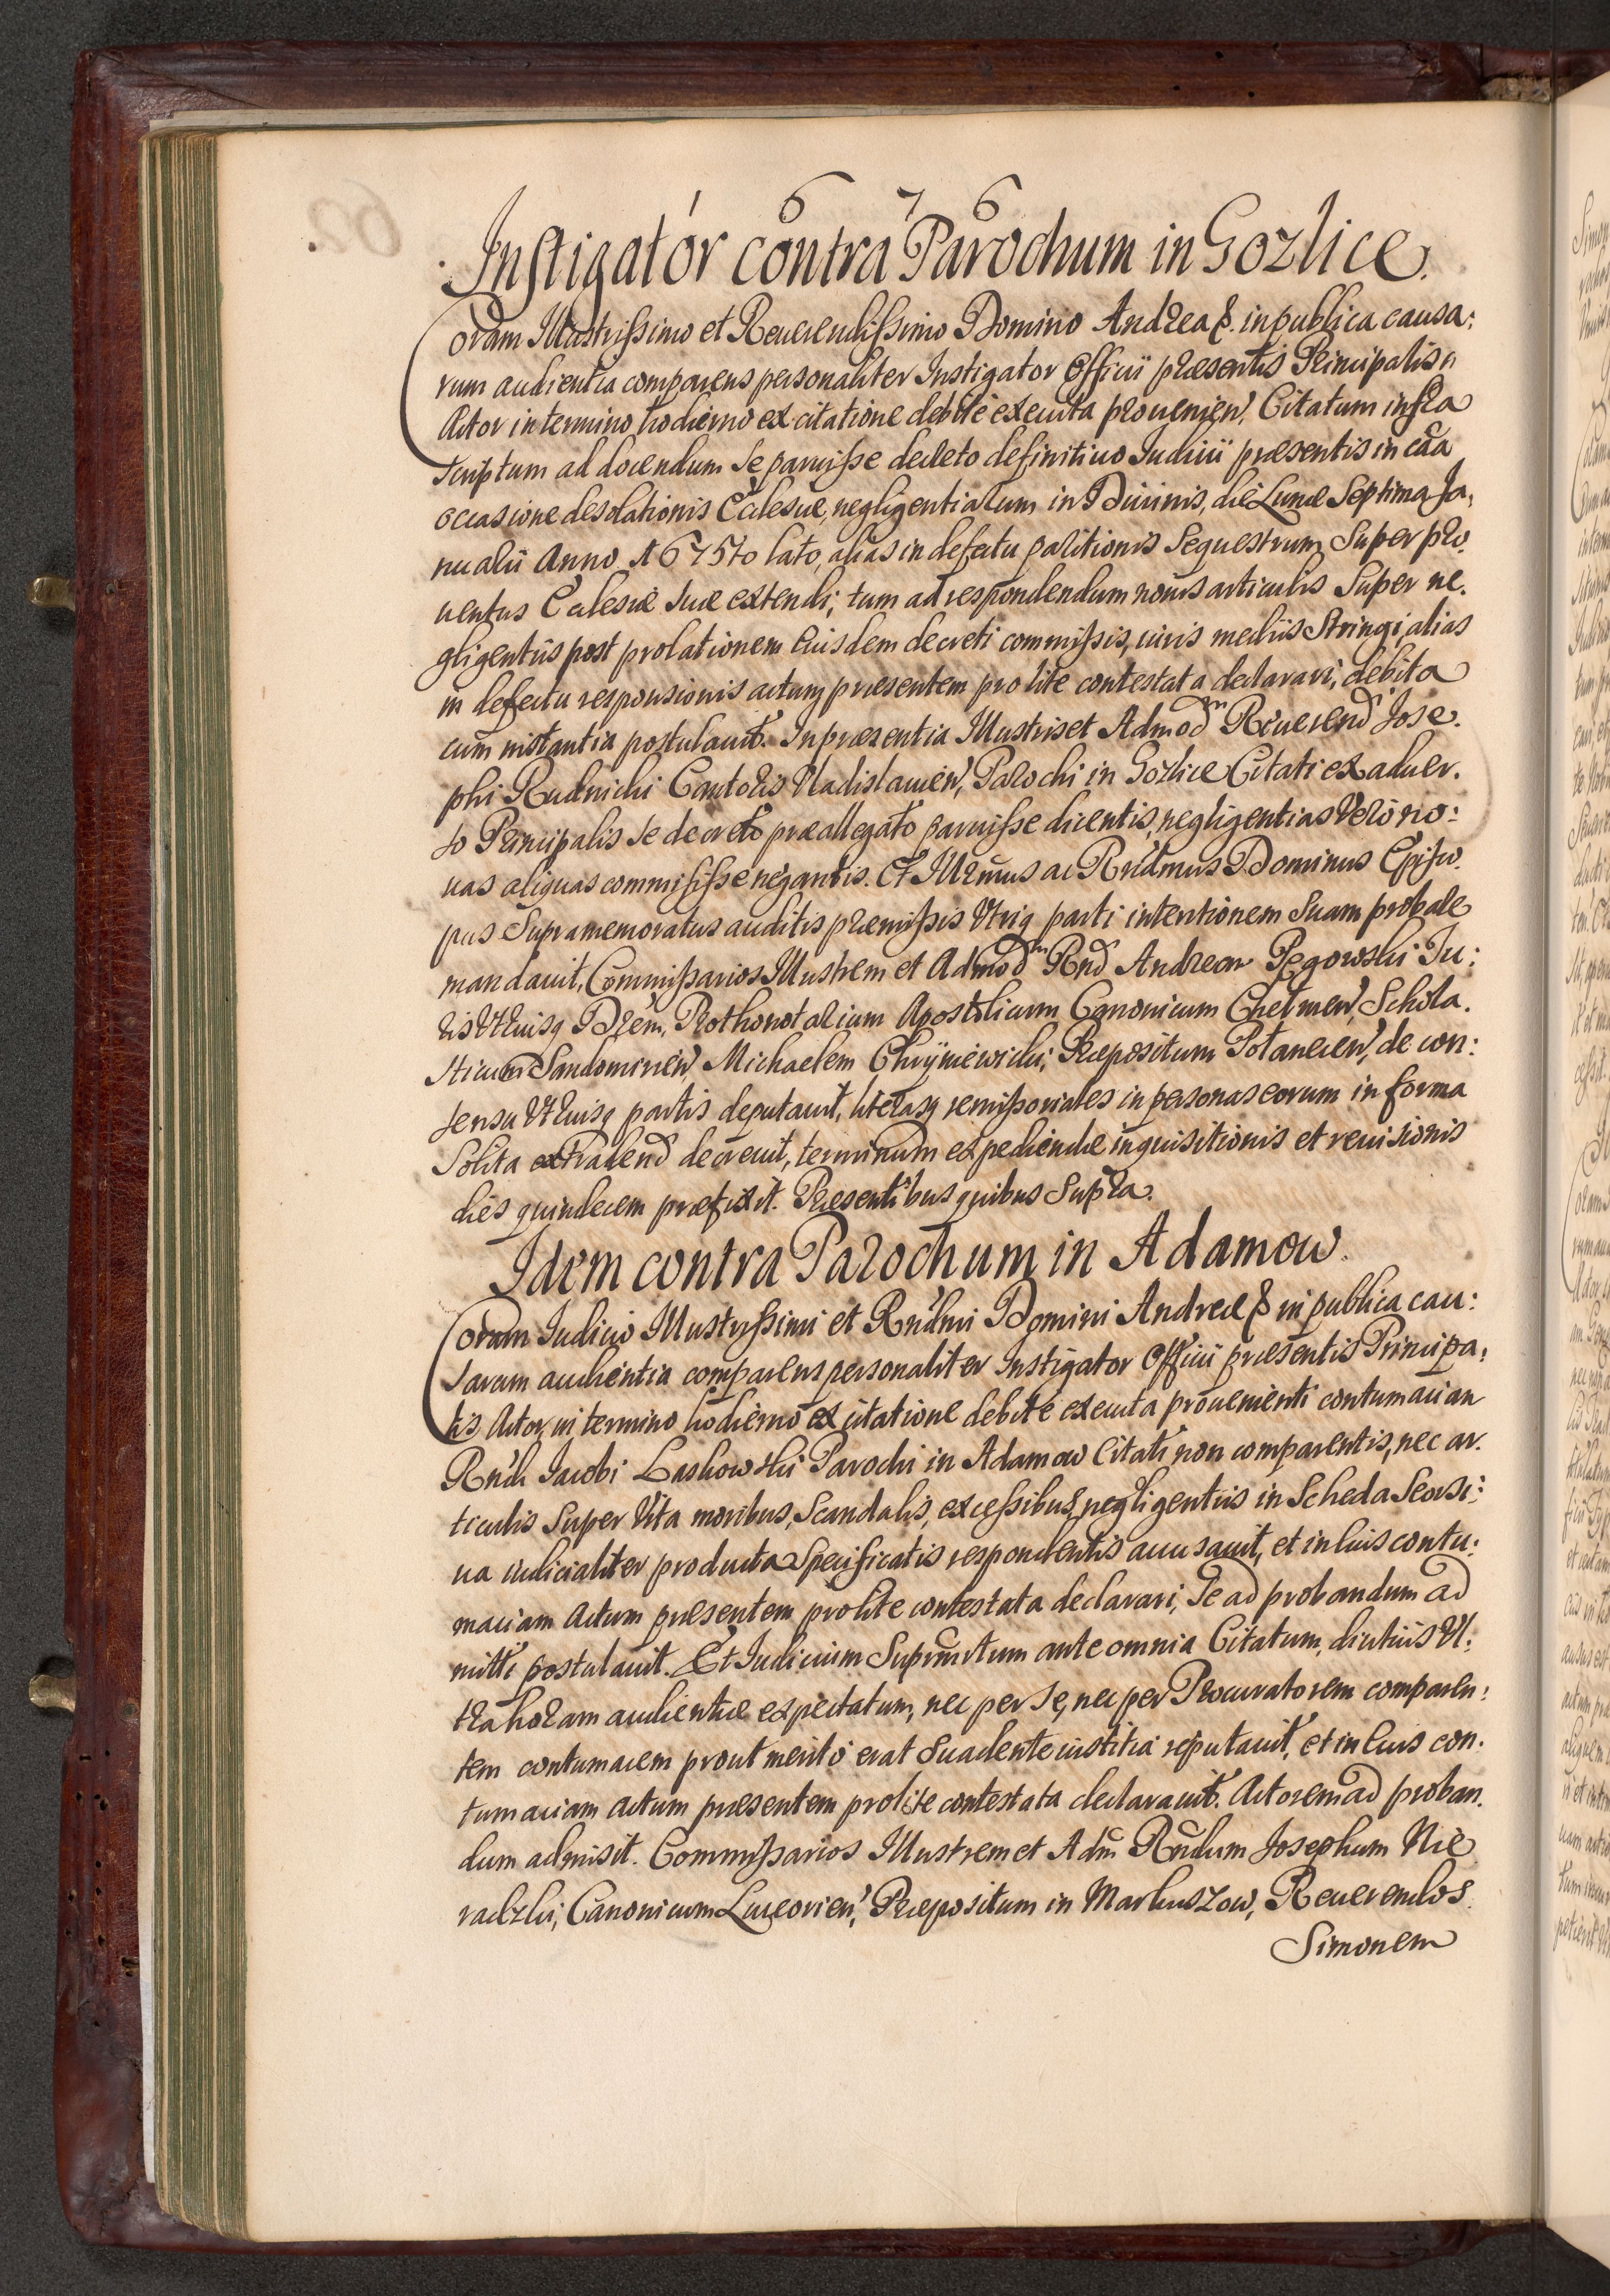 1 6 7 6
Instigator contra Parochum in Gozlice.
Coram Illustrissimo et Reuerendissimo Domino Andrea &. in publica causa:
rum audientia comparens personaliter Instigator Officii præsentis Principalis
Actor in termino hodierno ex citatione debite executa prouenien, Citatum infra
scriptum ad docendum se paruisse decreto definitiuo Iudicii præsentis in caa
occasione desolationis Eclesiæ, negligentiarum in Diuinis, die Lunæ Septima Ja,
nuarii Anno 1675to lato, alias in defectu paritionis Sequestrum Super pro.
uentus Eclesiæ suæ extendi; tum ad respondendum nouis articulis Super ne.
gligentiis post prolationem eiusdem decreti commissis, iuris mediis Stringi, alias
in defectu responsionis actum præsentem pro lite contestata declarari, debita
cum instantia postulauit. In præsentia Illustris et Admod m Reuerend Jose.
phi Rudnicki Cantoris Vladislauien, Parochi in Gozlice Citati ex aduer.
so Principalis se decreto præallegato paruisse dicentis, negligentias Vero no:
uas aliquas commisisse negantis. Et Illrmus ac Rndmus Dominus Episco.
pus Supramemoratus auditis præmissis Vtriq parti intentionem Suam probare
mandauit, Commissarios Illustrem et Admod m Rnd Andream Pegowski Iu:
ris Vtriusq Drem, Prothonotarium Apostolicum Canonicum Chelmen, Schola.
sticum Sandomirien, Michaelem Chryniewicki, Præpositum Potanecen, de con:
sensu Vtriusq partis deputauit, literasq remissoriales in personas eorum in forma
Solita extradend decreuit, terminum expediendæ inquisitionis et reuisionis
dies quindecem præfixit. Præsentibus quibus Supra.
Idem contra Parochum in Adamow.
Coram Iudicio Illustrissimi et Rndmi Domini Andreæ & in publica cau:
sarum audientia comparens personaliter Instigator Officii præsentis Principa:
lis Actor, in termino hodierno ex citatione debite executa prouenienti contumaciam
Rndi Iacobi Laskowski Parochi in Adamow Citati non comparentis, nec ar.
ticulis Super Vita moribus, Scandalis, excessibus, negligentiis in Scheda Seorsi:
ua iudicialiter producta Specificatis respondentis accusauit, et in huius contu:
maciam Actum præsentem pro lite contestata declarari, Se ad probandum ad
mitti postulauit. Et Iudicium Ante omnia Citatum, diutius Vl:
tra horam audientiæ expectatum, nec per se, nec per Procuratorem comparen:
tem contumacem prout merito erat Suadente iustitia reputauit, et in eius con.
tumaciam actum præsentem pro lite contestata declarauit. Actorem ad proban.
dum admisit. Commissarios Illustrem et Adm Rndum Josephum Nie
radzki, Canonicum Luceorien, Præpositum in Markuszow, Reuerendos
Simonem